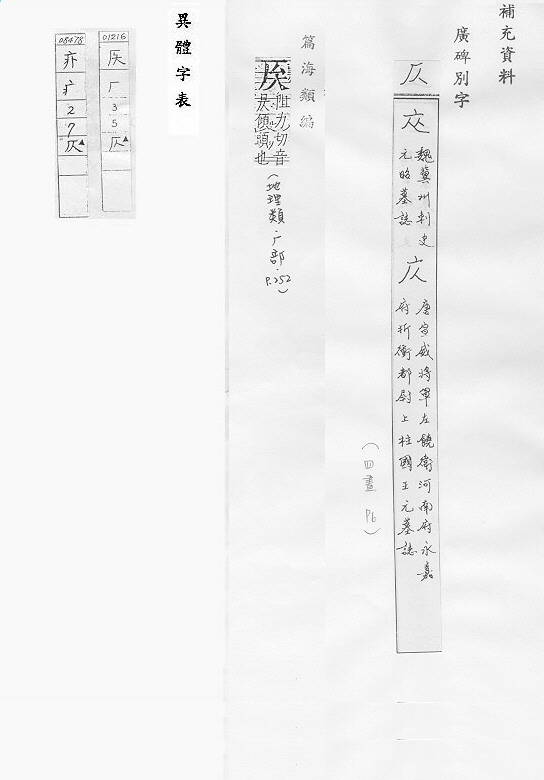 補充資料
廣碑別字
仄
魏冀州刺史
元昭墓誌
唐宣威將軍左饒衛河南府永嘉
府折衝都尉上柱國王元墓誌
(四畫 P6)
篇海類編
阻力切音
昃傾頭也
(地理類·厂部·P.252)
異體字表
01216
厂
3
5
仄▲
08478
疒
2
7
仄▲